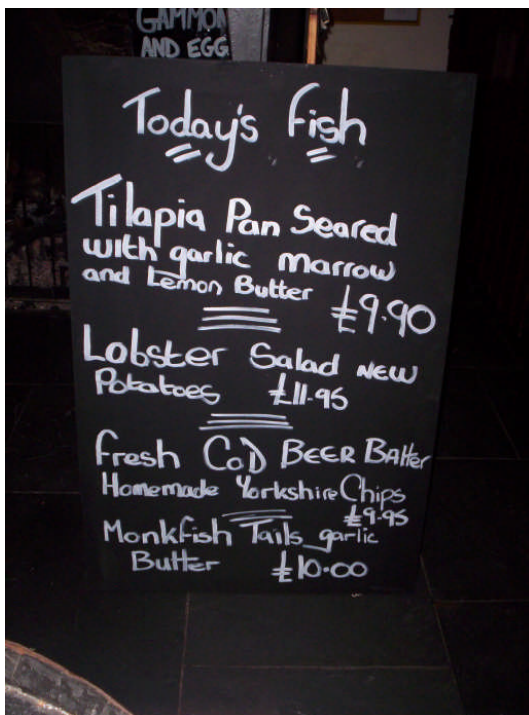 GAMMON
AND EGG
Today's Fish
Tilapia Pan Seared
with garlic marrow
and Lemon Butter £9.90
Lobster Salad NEW
Potatoes £11.95
fresh CoD BEER BAtter
Homemade Yorkshire Chips
£9.95
Monkfish Tails garlic
Butter £10.00